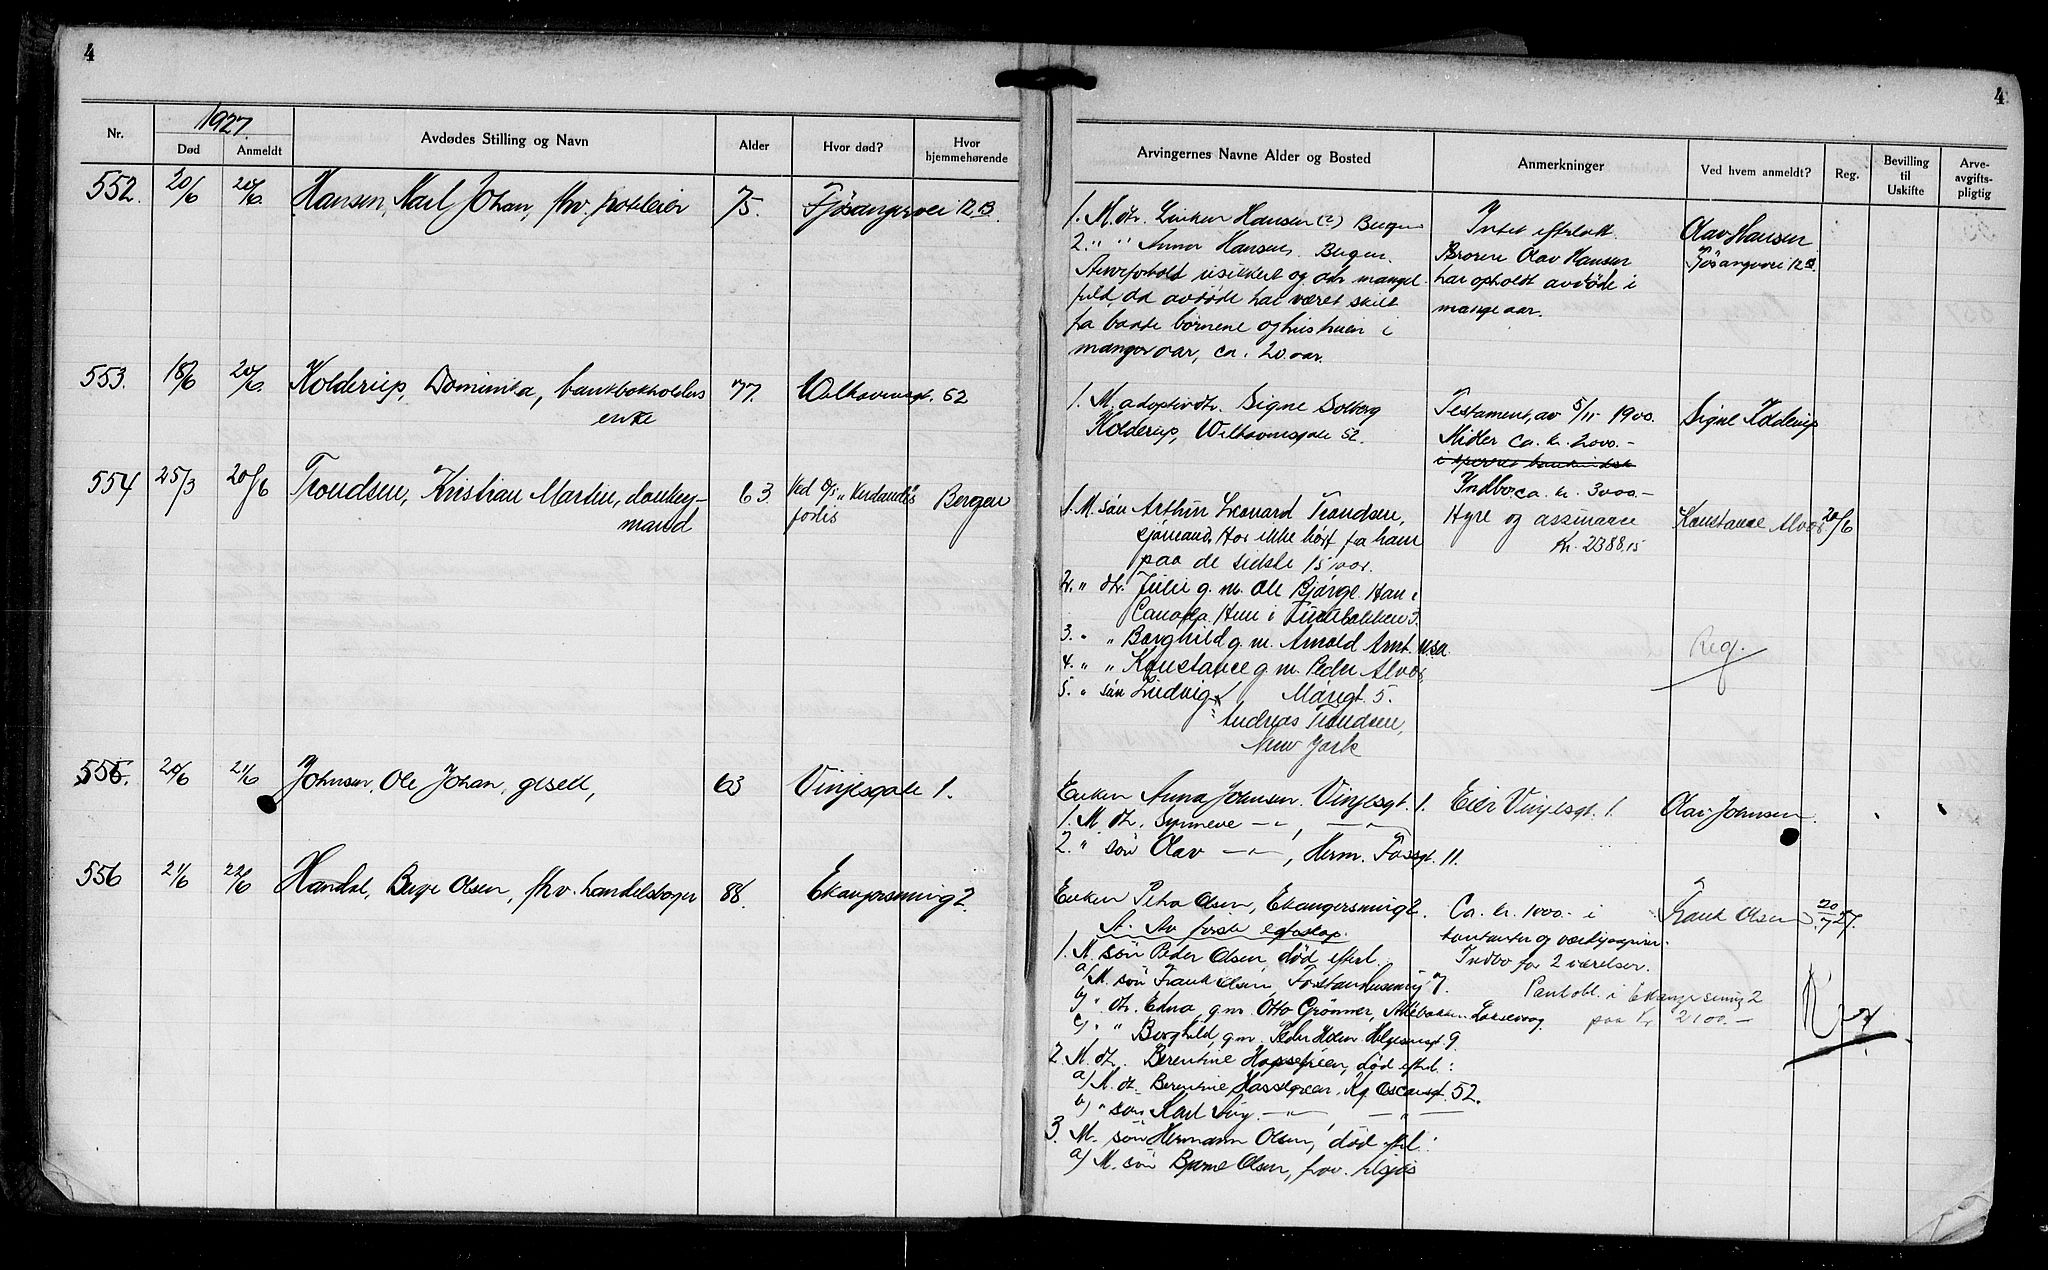 4
4
Nr.
1927.
Død
Anmeldt
Avdødes Stilling og Navn
Alder
Hvor død?
Hvor hjemmehørende
Arvingernes Navne Alder og Bosted
Anmerkninger
Ved hvem anmeldt?
Reg.
Bevilling til Uskifte
Arve-avgifts-pligtig
552. 20/6 20/6 Hansen, Karl Johan, fhv. 75. Fjøsangervei 12B
1. M. dtr. Hansen (?) Bergen
2. " " Anna Hansen. Bergen.
og mangel-
fuld, da avdøde har været skilt
fra baade børnene og hustruen i
mange aar, ca. 20 aar.
Intet efterlatt.
Broren Olav Hansen
har opholdt avdøde i
mange aar.
Olav Hansen
Fjøsangervei 12B
553. 18/6 20/6 Kolderup, Dominika, bankbokholders 77. Welhavensgt. 52
enke
1. M. adoptivdtr. Signe Solberg
Kolderup, Welhavensgate 52.
Testament, av 5/11 1900.
Midler ca. kr. 2000.-
Indbo ca. kr. 3000.-
Signe Kolderup
554 25/3 20/6 Trondsen, Kristian Martin, donkey- 63. Ved D/S "
forlis
Bergen
mand
1. M. søn Arthur Leonard Trondsen,
sjømand. Har ikke hørt fra ham
paa de sidste 15 aar.
2. " dtr. Julie g. m. Ole Bjørge. Han i
Canada. Hun i 3.
3. " " Borghild g. m. Arnold Arnt. U.S.A.
4. " " Konstance g. m. Peder Alvær,
5. " søn Ludvig Maregt. 5.
Andreas Trondsen,
New York
Hyre og assurance
Kr. 2388.15
Konstance Alvær 20/6
Reg.
555. 20/6 21/6 Johnsen, Ole Johan, gesell, 63 Vinjesgate 1.
Enken Anna Johnsen. Vinjesgt. 1.
1. M. dtr. Synneve -"-, -"-
2. " søn Olav -"-, Herm. Fossgt. 11.
Eier Vinjesgt. 1.
Olav Johnsen.
556 21/6 22/6 Handal, Berge Olsen, fhv. handelsborger 88. Ekangersmug 2.
Enken Petra Olsen, Ekangersmug 2.
A. Av første egteskap.
1. M. søn Peder Olsen, død efterl.
a/ M. søn Frank Olsen, Forstandersmug 7.
b/ " dtr. Edna, g.m. Otto Grønner, Laksevaag
c/ " " Borghild, g.m. Peder Holm Helgesensgt. 9
2. M. dtr. Berentine Hasselgreen, død efterl.:
a/ M. dt. Berentine Hasselgreen, Kg. Oscarsgt. 52.
b/ " søn Karl -"- -"-
3. M. søn Hermann Olsen, død efterl.:
a/ M. søn Bjarne Olsen, frav. tilsjøs
Ca. kr. 1000.- i
kontanter og værdipapirer.
Indbo for 2 værelser.
Pantobl. i Ekangersmug 2
paa kr 2100.-
Frank Olsen
20/7 27.